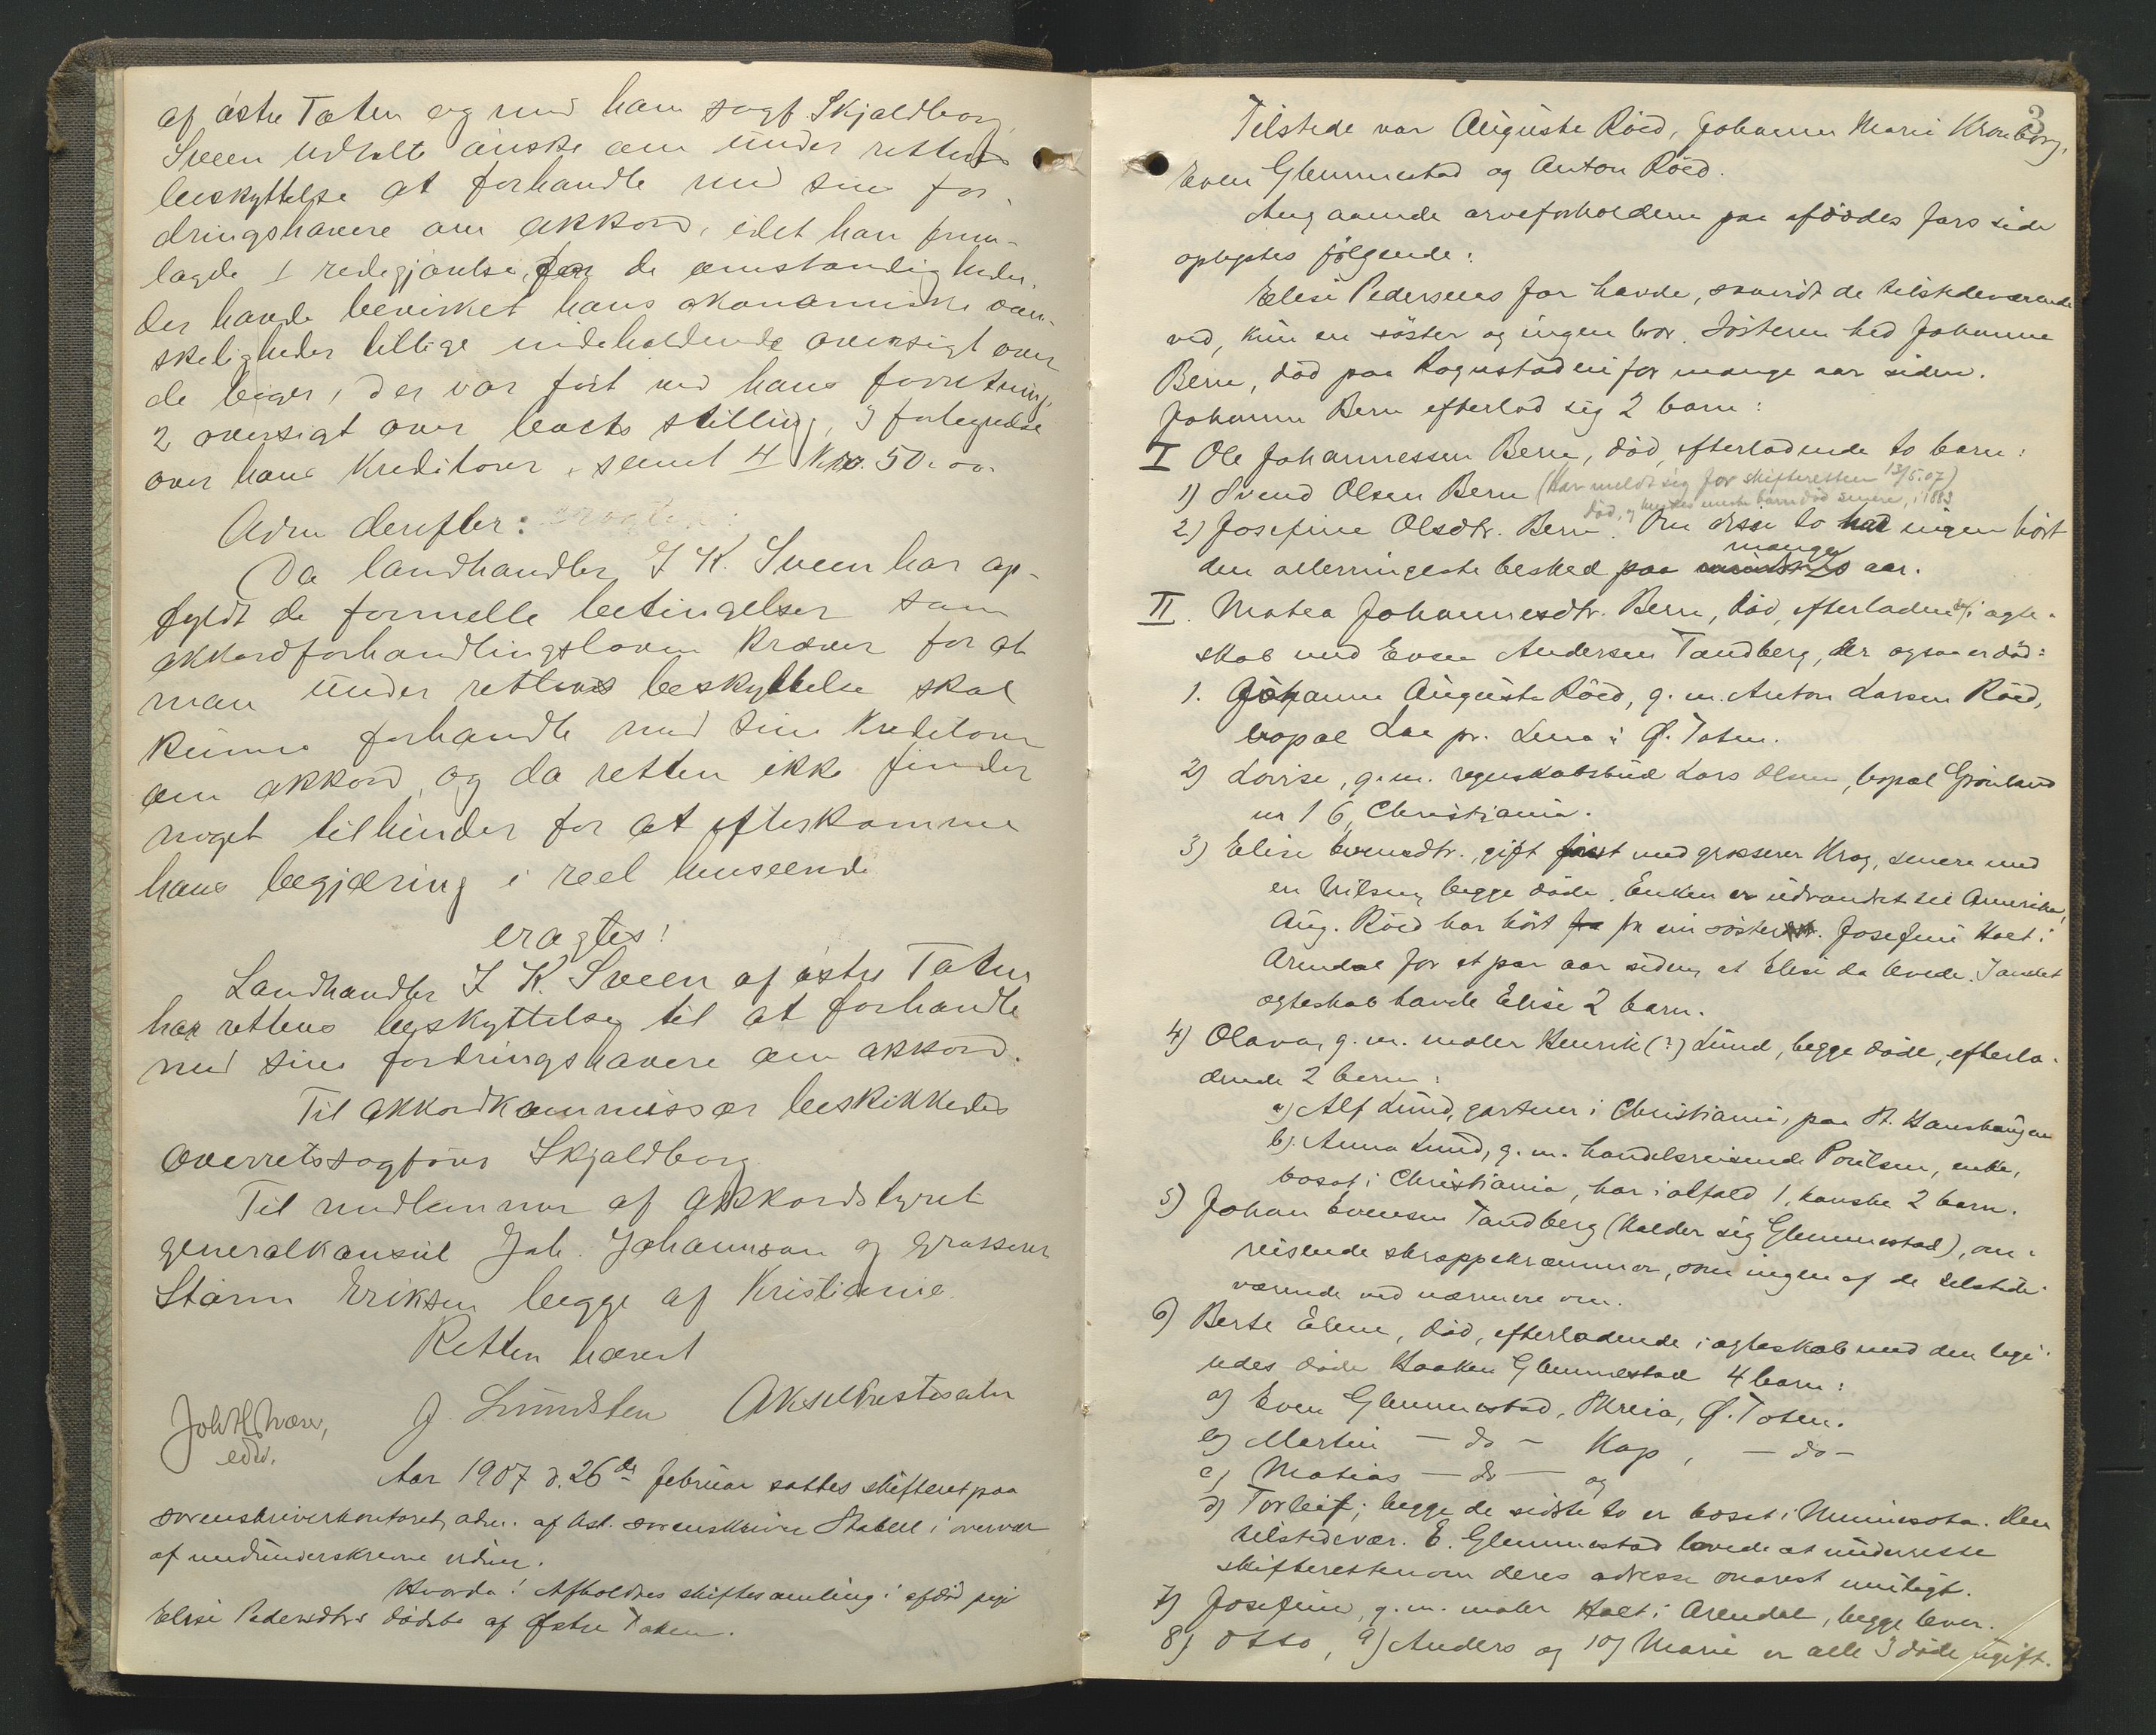 af østre Toten og med ham sagf. Skjaldborg.
Sveen udtalte ønske om under rettens
beskyttelse at forhandle med sine for-
dringshavere om akkord, idet han frem-
lagde 1 redegjørelse for de omstændigheder,
der havde bevirket hans økonomiske van-
skeligheder tillige indeholdende oversigt over
de bøger, der var ført ved hans forretning,
2 oversigt over boets stilling, 3 fortegnelse
over hans kreditorer, samt 4 Kr. 50.00.
Adm derefter:
Da landhandler J K. Sveen har op-
fyldt de formelle betingelser som
akkordforhandlingsloven kræver for at
man under rettens beskyttelse skal
kunne forhandle med sine kreditorer
om akkord, og da retten ikke finder
noget tilhinder for at efterkomme
hans begjæring i reel henseende
eragtes:
Landhandler J K. Sveen af østre Toten
har rettens beskyttelse til at forhandle
med sine fordringshavere om akkord.
Til akkordkommissær beskikkedes
overretssagfører Skjaldborg
Til medlemmer af akkordstyret
generalkonsul Joh. Johannson og grosserer
Storm Eriksen begge af Kristiania.
Retten hævet
J. Lundsten
Aar 1907 d. 26de februar sattes skifteret paa
sorenskriverkontoret, adm. af kst. sorenskriver Stabell i overvær
af medunderskrevne vidner.
Hvorda: Afholdtes skiftesamling i afdød pige
Elise Pedersdtrs dødsbo af Østre Toten.
3
Tilstede var Auguste Röed, Johanne Marie Kronborg,
Even Glemmestad og Anton Röed.
Angaaende arveforholdene paa afdödes fars side
oplystes fölgende:
Elise Pedersens far havde, saavidt de tilstedeværende
ved, kun en söster og ingen bror. Sösteren hed Johanne
Bern, död paa Rognstadeie for mange aar siden.
Johanne Bern efterlod sig 2 barn:
I Ole Johannessen Bern, död, efterladende to barn:
1) Svend Olsen Bern (Har meldt sig for skifteretten 13/5.07)
död, og hendes eneste barn död senere, i 1883
2) Josefine Olsdtr. Bern. Om disse to had ingen hört
den allerringeste besked paa mange aar.
II. Matea Johannesdtr. Bern, död, efterladende i ægte-
skab med Even Andersen Tandberg, der ogsaa er död:
1. Johanne Auguste Röed, g. m. Anton Larsen Röed,
bopæl Laa pr. Lena i Ø. Toten.
2) Lovise, g. m. regnskabsbud Lars Olsen, bopæl Grönland
nr 16, Christiania.
3) Elise Evensdtr., gift först med grosserer Krog, senere med
en Nilsen, begge döde. Enken er udvandret til Amerika,
Aug. Röed har hört fra fr sin söster Josefine Holt i
Arendal for et par aar siden, at Elise da levede. I andet
ægteskab havde Elise 2 barn.
4) Olava, g. m. maler Henrik (?) Lund, begge döde, efterla-
dende 2 barn:
a) Alf Lund, gartner i Christiania, paa St. Hanshaugen
b). Anna Lund, g. m. handelsreisende Poulsen, enke,
bosat i Christiania, har ialfald 1, kanske 2 barn.
5) Johan Evensen Tandberg (kalder sig Glemmestad), om-
reisende skrappekræmmer, som ingen af de tilstede-
værende ved nærmere om.
6) Berte Elene, död, efterladende i ægteskab med den ligi-
ledes döde Haaken Glemmestad 4 barn:
a) Even Glemmestad, Skreia, Ø. Toten.
b) Martin — do — Kap, — do —
c) Matias — do — og
d) Torleif; begge de sidste to er bosat i Minnesota. Den
tilstedevær. E. Glemmestad lovede at underrette
skifteretten om deres adresse snarest muligt.
7) Josefine, g. m. maler Holt i Arendal, begge lever.
8) Otto, 9) Anders og 10) Marie er alle 3 döde ugift.